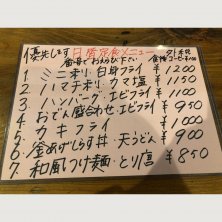 優先します 日替定食メニュー
番号でお呼び下さい 食後コーヒー¥100
1・ミニ刺・白身フライ ¥1200
2・ハマチ刺・カマ塩 ¥1150
3・ハンバーグ・エビフライ ¥1100
4・おでん盛合わせ・エビフライ ¥950
5・カキフライ ¥1000
6・釜あげしらす丼・天うどん ¥900
7・和風つけ麺・とり唐 ¥850